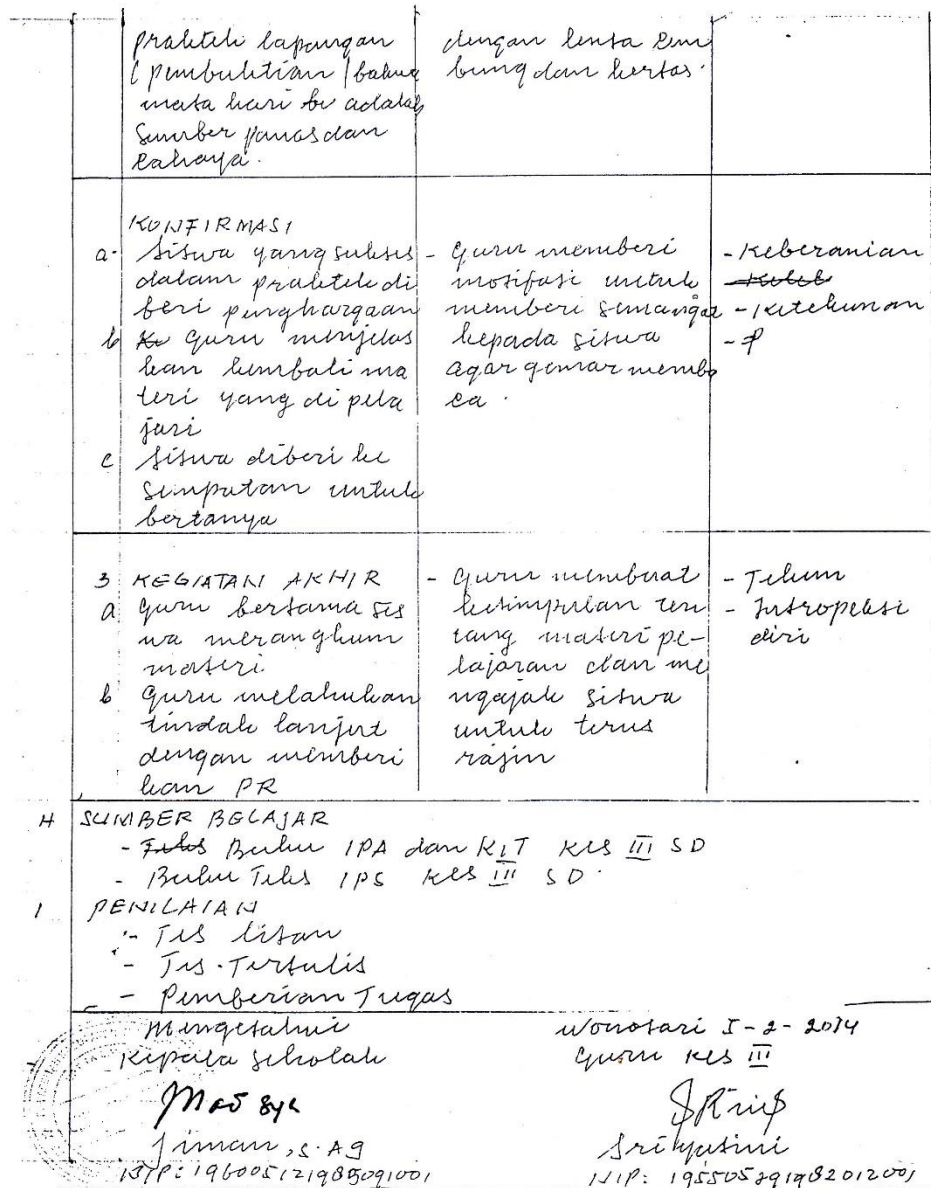 praktek lapangan
(pembuktian) bahwa
mata hari be adalah
Sumber panas dan
Cahaya.
dengan lensa cem
bung dan kertas.
KONFIRMASI
a. Siswa yang sukses
dalam praktek di
beri penghargaan
b Ke Guru menjelas
kan kembali ma
teri yang di pela
jari
c Siswa diberi ke
sempatan untuk
bertanya
- Guru memberi
motifasi untuk
memberi semangat
kepada siswa
agar gemar memba
ca.
- Keberanian
- Ketekunan
- P
3 KEGIATAN AKHIR
a Guru bersama sis
wa merangkum
materi.
b Guru melakukan
tindak lanjut
dengan memberi
kan PR
- Guru membuat
kesimpulan ten
tang materi pe-
lajaran dan me
ngajak siswa
untuk terus
rajin
- Tekun
- Intropeksi
diri
H SUMBER BELAJAR
- Buku IPA dan KIT Kls III SD
- Buku Teks IPS Kls III SD.
I PENILAIAN
- Tes lisan
- Tes. Tertulis
- Pemberian Tugas
Mengetahui
Kepala Sekolah
Jiman, S.Ag
NIP: 196005121985091001
Wonosari 5-2-2014
Guru Kls III
Sri yatini
NIP: 195505291982012001